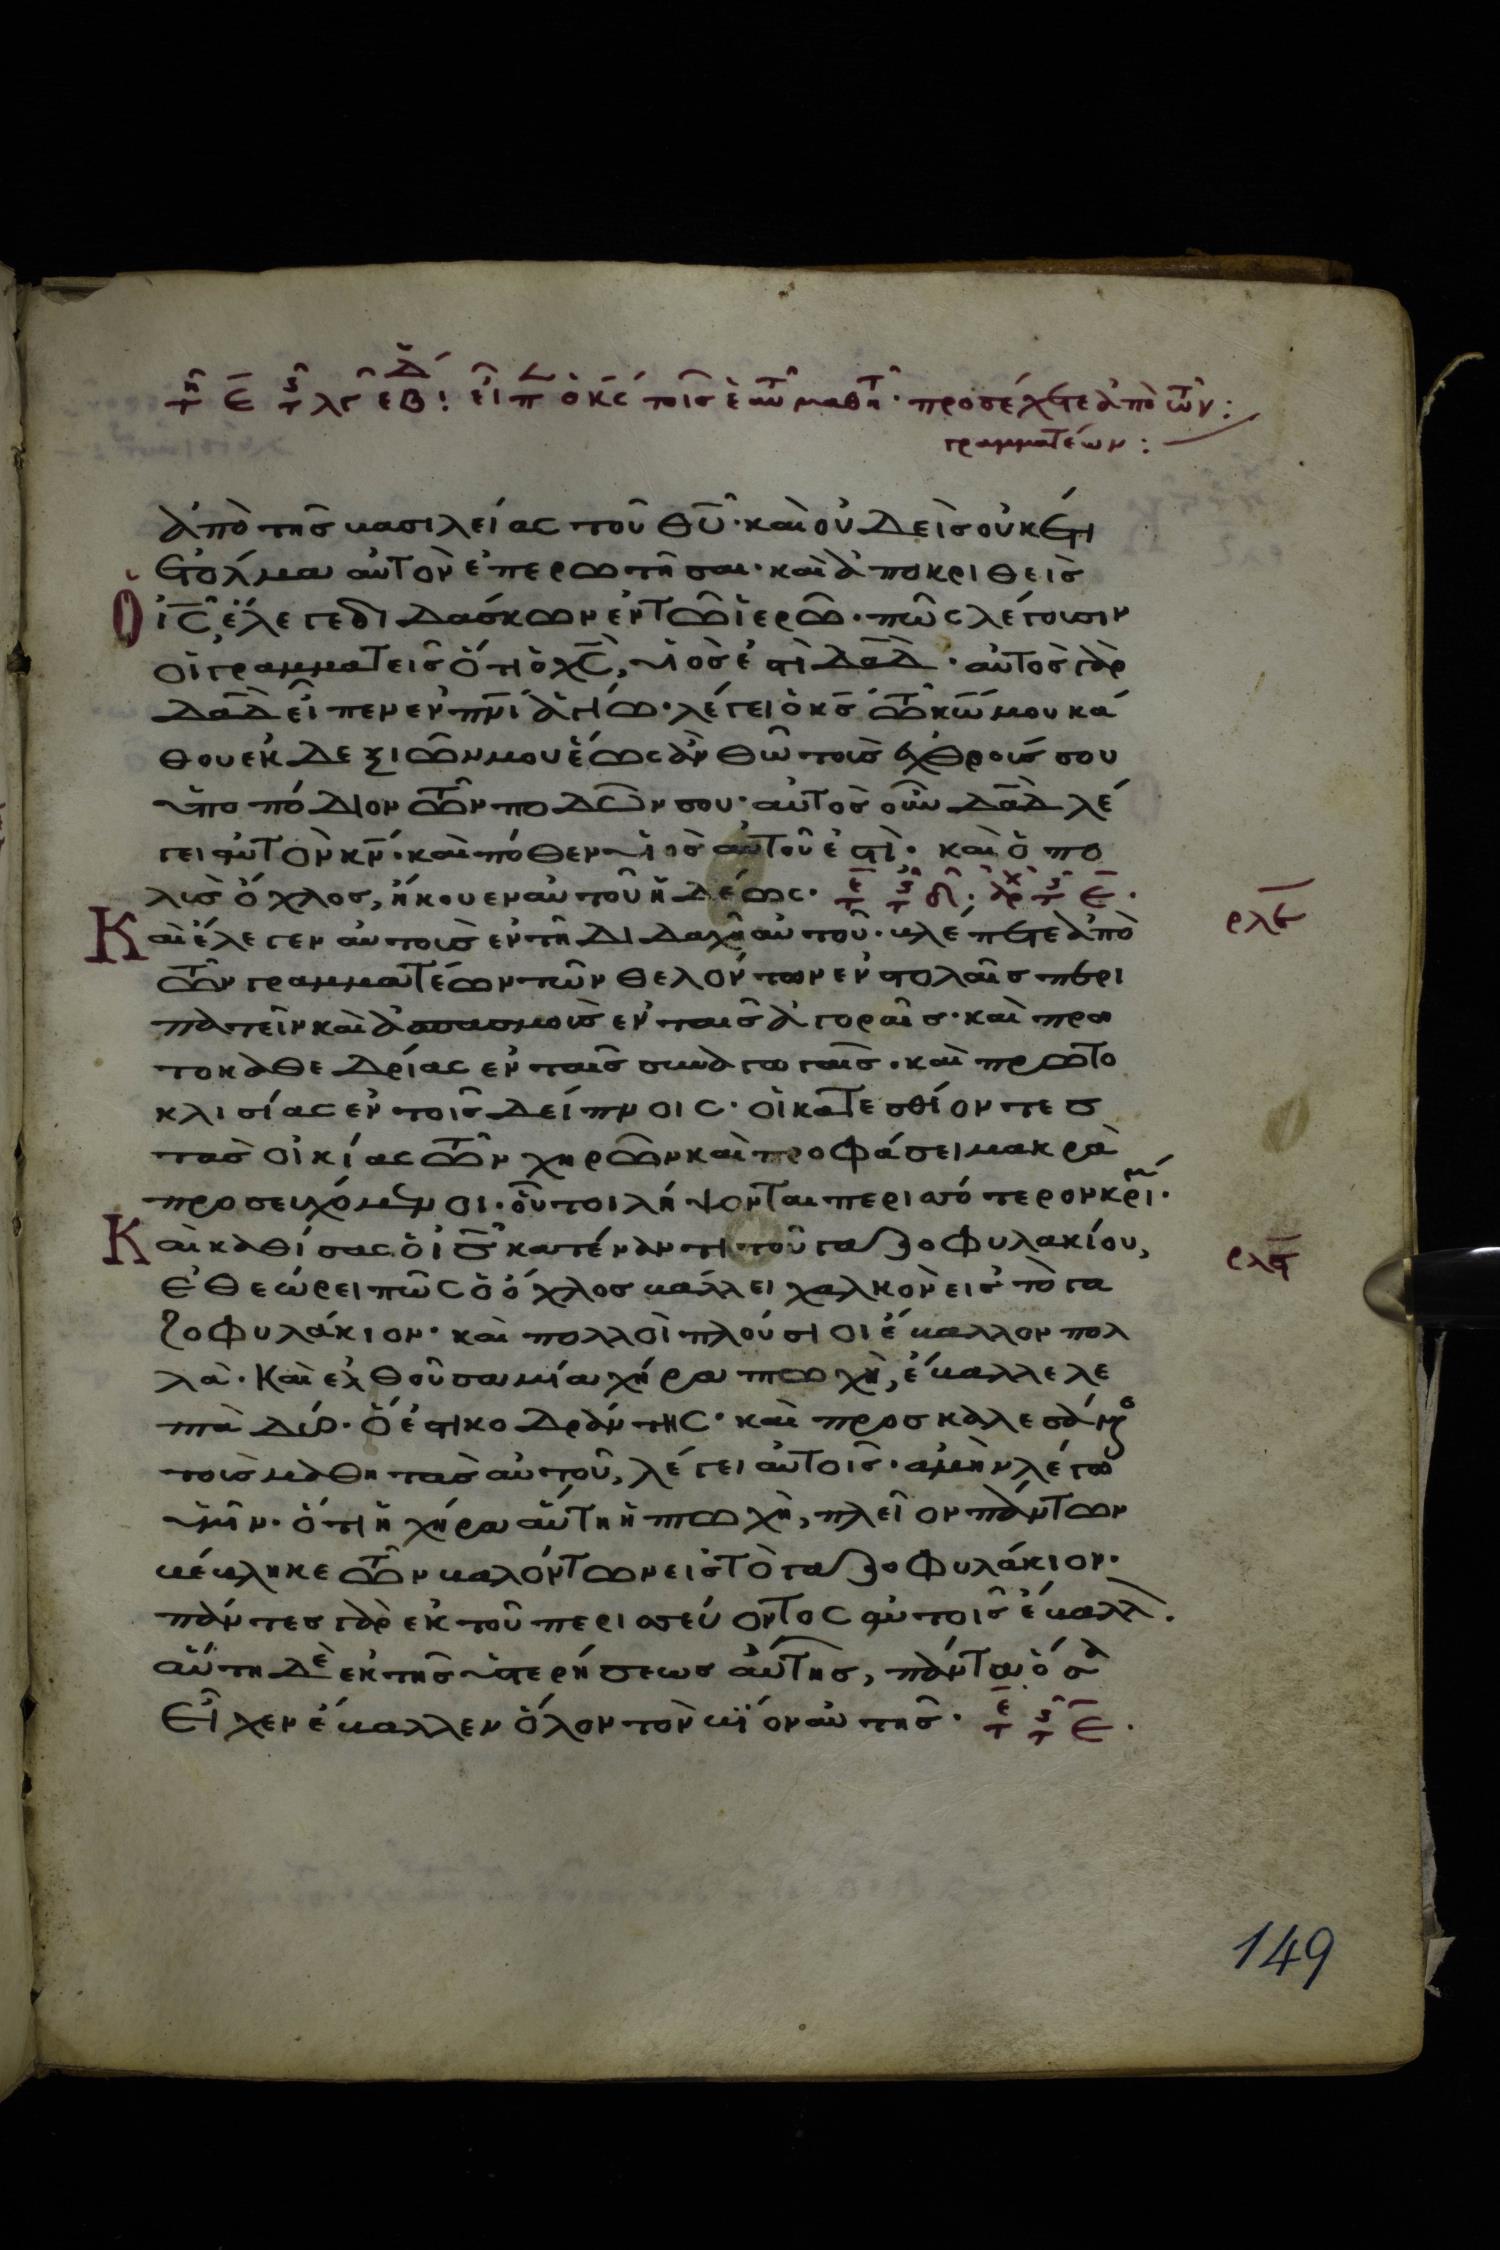 τῆ ε τῆς λγ εβδ: εἶπ ὁ κς τοῖς ἑαυτ μαθη· προσέχετε ἀπὸ τῶν:
γραμματέων:
ἀπὸ τῆς βασιλείας τοῦ θυ· καὶ οὐδεὶς οὐκέτι
ἐτόλμα αὐτὸν ἐπερωτῆσαι· καὶ ἀποκριθεὶς
ὁ ις, ἔλεγε διδάσκων ἐν τῶ ἱερῶ· πῶς λέγουσιν
οἱ γραμματεῖς ὅτι ὁ χς, υἱὸς ἐστὶ δαδ· αὐτὸς γὰρ
δαδ εἶπεν ἐν πνι ἁγίω· λέγει ὁ κς τῶ κω μου κά
θου ἐκ δεξιῶν μου ἕως ἂν θῶ τοὺς ἐχθρούς σου
ὑποπόδιον τῶν ποδῶν σου· αὐτὸς οὖν δαδ λέ
γει αὐτὸν κν· καὶ πόθεν υἱὸς αὐτοῦ ἐστὶ· καὶ ὁ πο
λὺς ὄχλος, ἤκουεν αὐτοῦ ἡδέως·
Καὶ ἔλεγεν αὐτοῖς ἐν τῆ διδαχῆ αὐτοῦ· βλέπετε ἀπὸ
ρλε
τῶν γραμματέων τῶν θελόντων ἐν στολαῖς περι
πατεῖν καὶ ἀσπασμοὺς ἐν ταῖς ἀγοραῖς· καὶ πρω
τοκαθεδρίας ἐν ταῖς συναγωγαῖς· καὶ πρωτο
κλισίας ἐν τοῖς δείπνοις· οἱ κατεσθίοντες
τὰς οἰκίας τῶν χηρῶν καὶ προφάσει μακρὰ
προσευχόμενοι· οὗτοι λήψονται περισσότερον κρίμ·
Καὶ καθίσας ὁ ις κατέναντι τοῦ γαζοφυλακίου,
ρλς
ἐθεώρει πῶς ὁ ὄχλος βάλλει χαλκὸν εἰς τὸ γα
ζοφυλάκιον· καὶ πολλοὶ πλούσιοι ἔβαλλον πολ
λά· Καὶ ἐλθοῦσα μία χήρα πτωχὴ, ἔβαλλε λε
πτὰ δύο· ὅ ἐστι κοδράντης· καὶ προσκαλεσάμενος
τοὺς μαθητὰς αὐτοῦ, λέγει αὐτοῖς· ἀμὴν λέγω
ὑμῖν· ὅτι ἡ χήρα αὕτη ἡ πτωχὴ, πλεῖον πάντων
βέβληκε τῶν βαλόντων εἰς τὸ γαζοφυλάκιον·
πάντες γὰρ ἐκ τοῦ περισσεύοντος αὐτοῖς ἔβαλλ·
αὕτη δὲ ἐκ τῆς ὑστερήσεως αὐτῆς, πάντα ὅσα
εἶχεν ἔβαλλεν ὅλον τὸν βίον αὐτῆς·
149